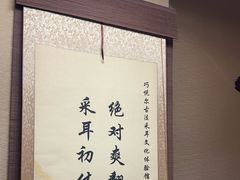 巧悦尔古法采耳文化体验馆
绝对爽翻
采耳初体